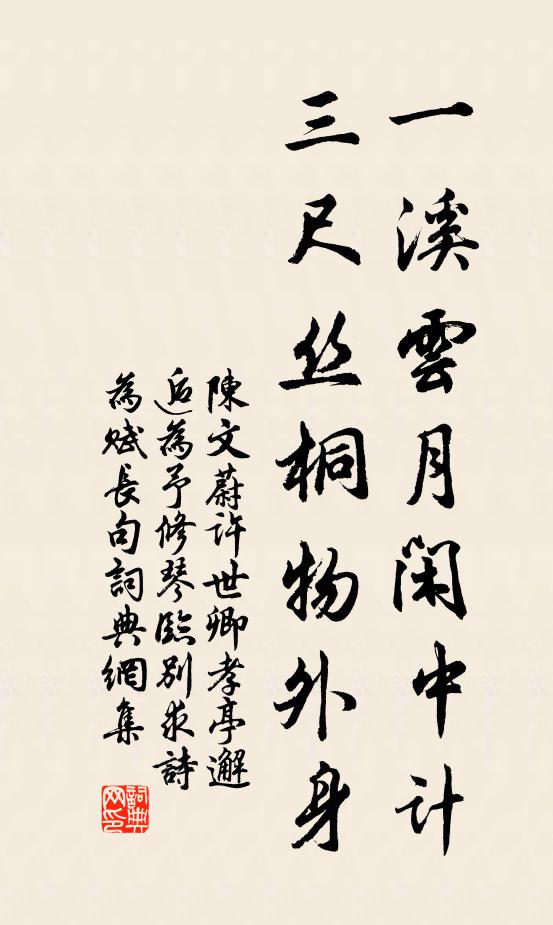 一溪雲月閑中计
三尺丝桐物外身
陳文蔚許世卿孝亭邂
逅為予修琴臨別求詩
為赋長句詞典網集
詞典网印